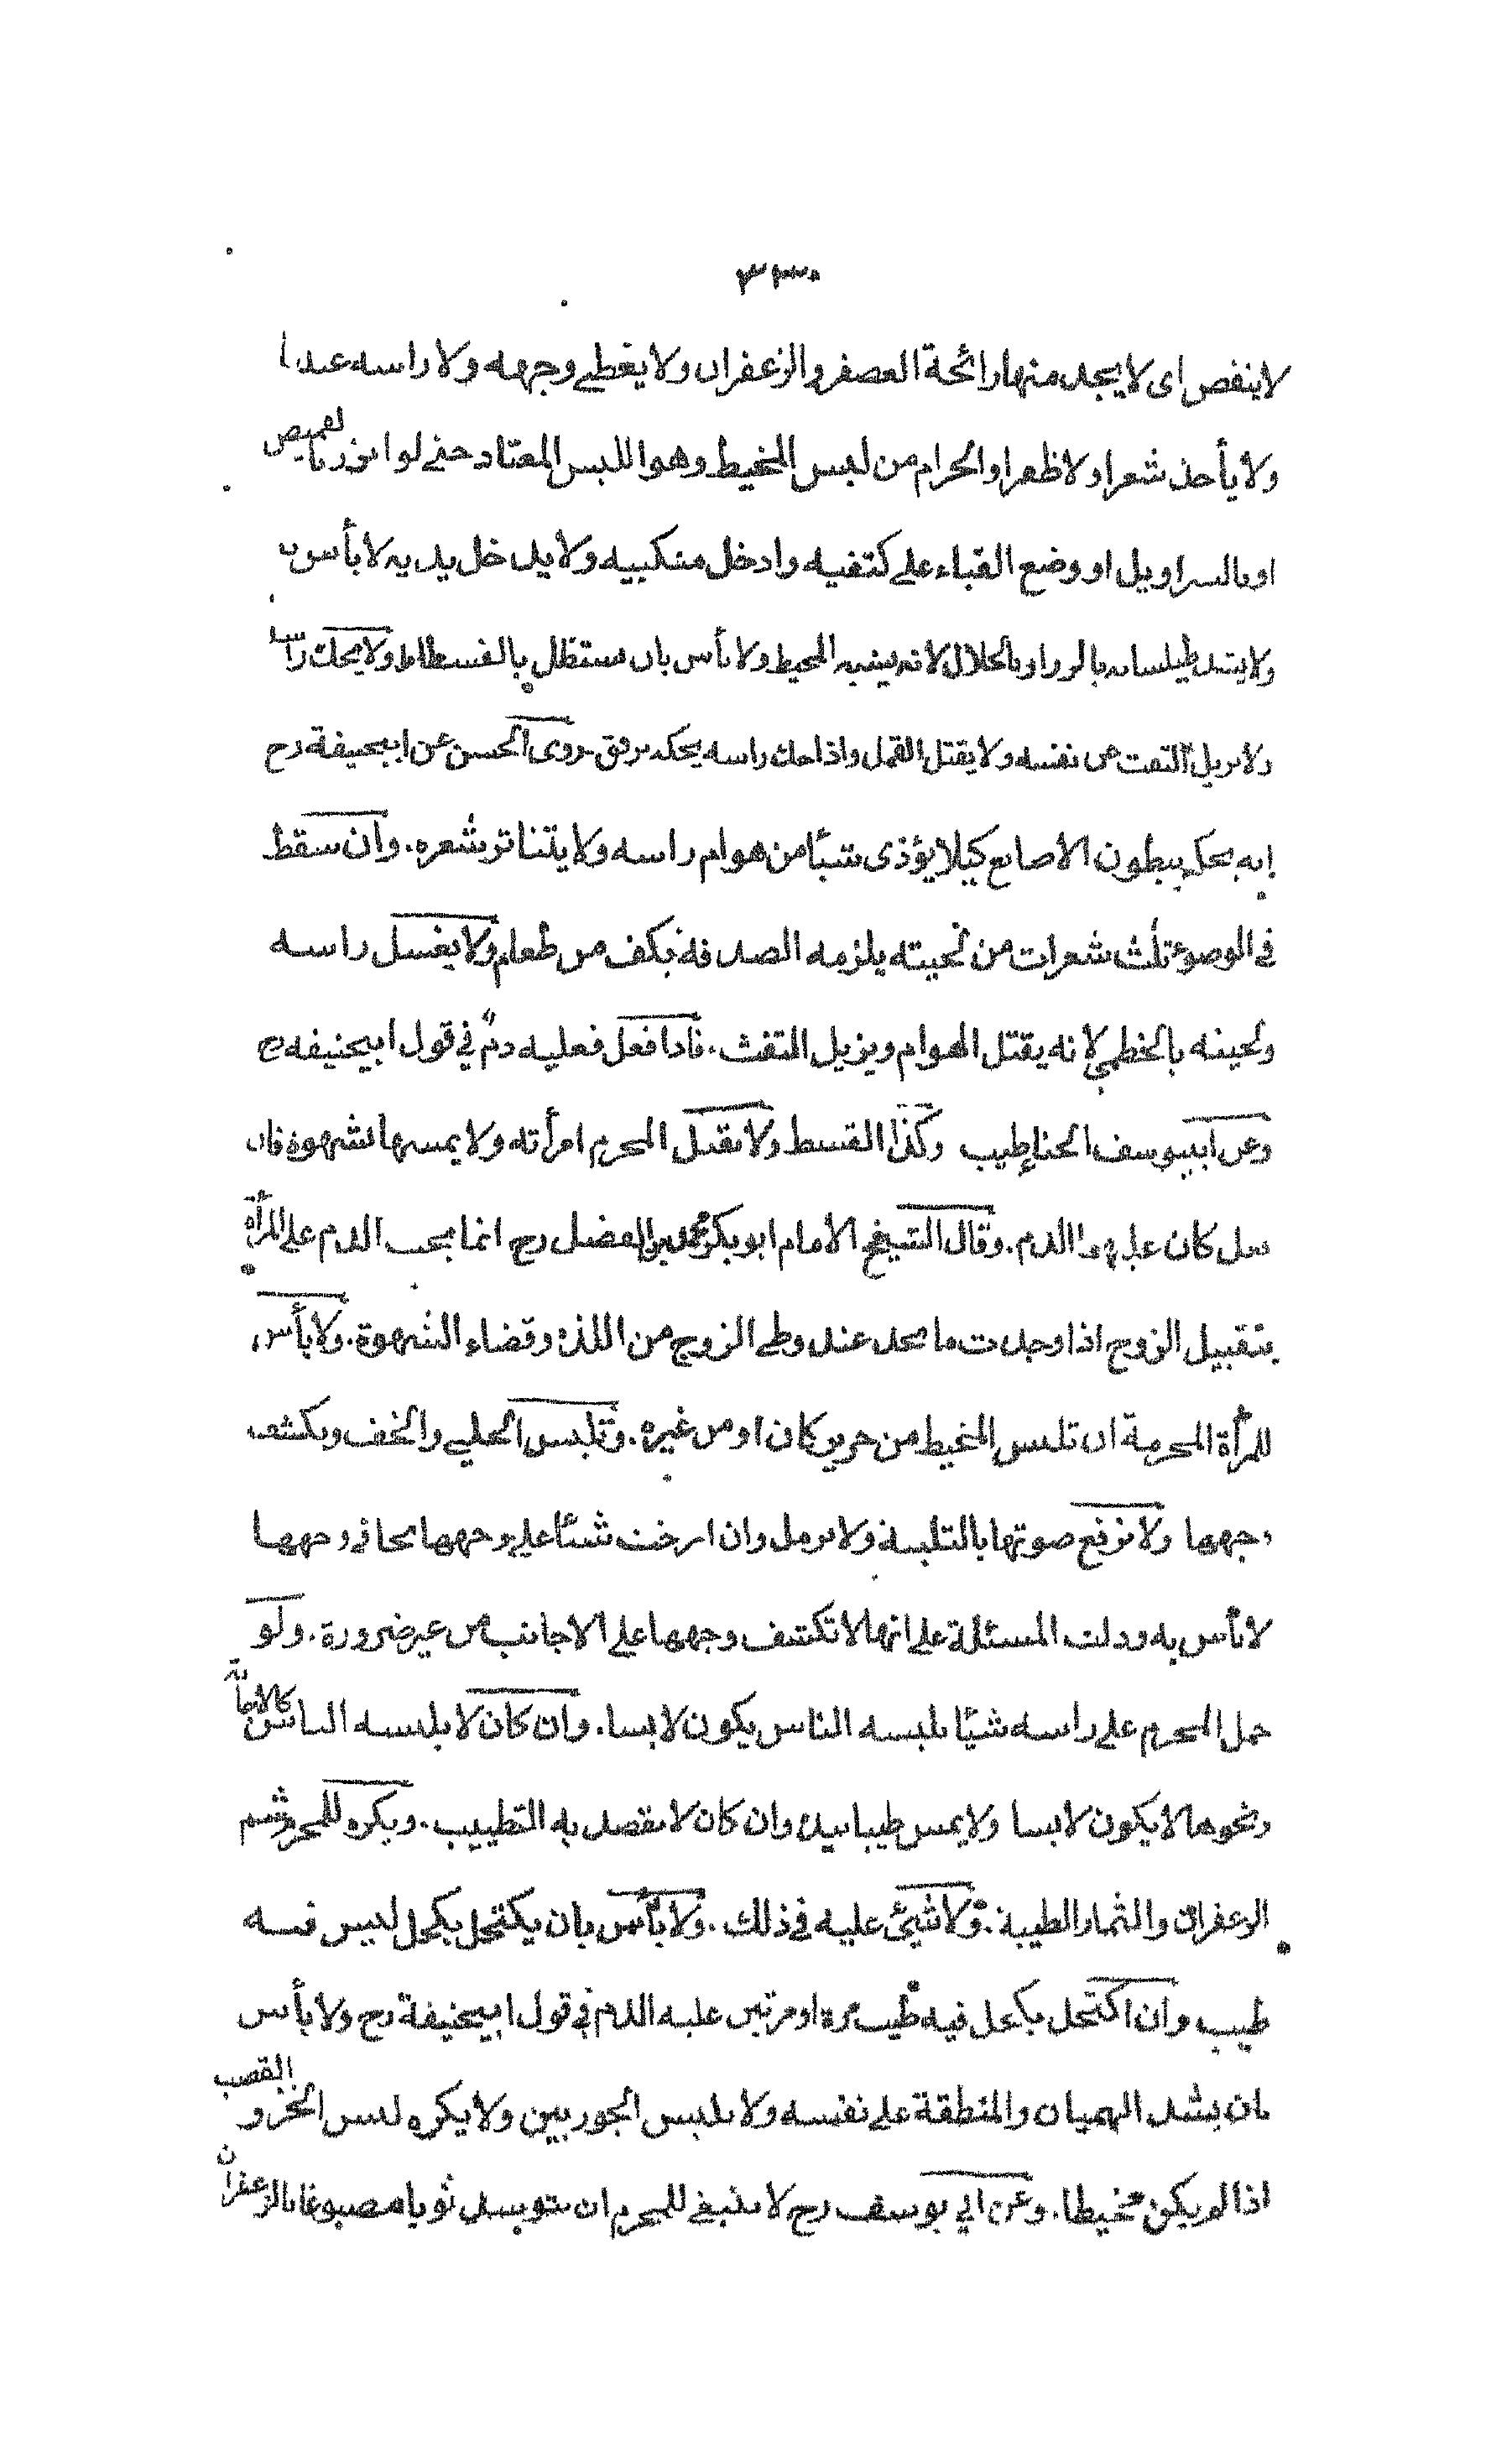 ٣٣٠
لا ينفص اى لا يجد منها رائحة العصفر والزعفران ولا يغطي وجهه ولا راسه عندنا
ولا يأخذ شعرا ولا ظفرا والحرام من لبس المخيط وهو اللبس المعتاد حتى لو اتزر بالقميص
او بالسراويل او وضع القباء على كتفيه وادخل منكبيه ولا يدخل يديه لا بأس به
ولا يشد طيلسانه بالزر او بالخلال لانه يشبه المخيط ولا بأس بان يستظل بالفسطاط ولا يحك راسه
ولا يزيل التفث عن نفسه ولا يقتل القمل واذا حك راسه يحكه برفق روى الحسن عن ابيحنيفة رح
انه يحكه ببطون الاصابع كيلا يؤذى شيأ من هوام راسه ولا يتناثر شعره. وان سقط
في الوضوء ثلث شعرات من لحيته يلزمه الصدقة بكف من طعام ولا يغسل راسه
ولحيته بالخطمي لانه يقتل الهوام ويزيل التفث. فاذا فعل فعليه دم في قول ابيحنيفه رح
وعن ابيوسف الحناء طيب وكذا القسط ولا يقبل المحرم امرأته ولا يمسها بشهوة فان
فعل كان عليهما الدم. وقال الشيخ الامام ابو بكر محمد بن الفضل رح انما يجب الدم على المرأة
بتقبيل الزوج اذا وجدت ما يجد عند وطى الزوج من اللذة وقضاء الشهوة. ولا بأس
للمرأة المحرمة ان تلبس المخيط من حرير كان او من غيره. وتلبس الحلي والخف وتكشف
وجهها ولا ترفع صوتها بالتلبية ولا ترمل وان ارخت شيئا على وجهها بحاذى وجهها
لا بأس به ودلت المسئلة على انها لا تكشف وجهها على الاجانب من غير ضرورة. ولو
حمل المحرم على راسه شيئا يلبسه الناس يكون لابسا. وان كان لا يلبسه الناس كالاجانة
ونحوها لا يكون لابسا ولا يمس طيبا بيده وان كان لا يقصد به التطييب. ويكره للمحرم شم
الزعفران والثمار الطيبة. ولا شيئ عليه في ذلك. ولا بأس بان يكتحل بكحل ليس فيه
طيب وان اكتحل بكحل فيه طيب مرة او مرتين عليه الدم في قول ابيحنيفة رح ولا بأس
بان يشد الهميان والمنطقة على نفسه ولا يلبس الجوربين ولا يكره لبس الخز والقصب
اذا لم يكن مخيطا. وعن ابي يوسف رح لا ينبغي للمحرم ان يتوسد ثوبا مصبوغا بالزعفران